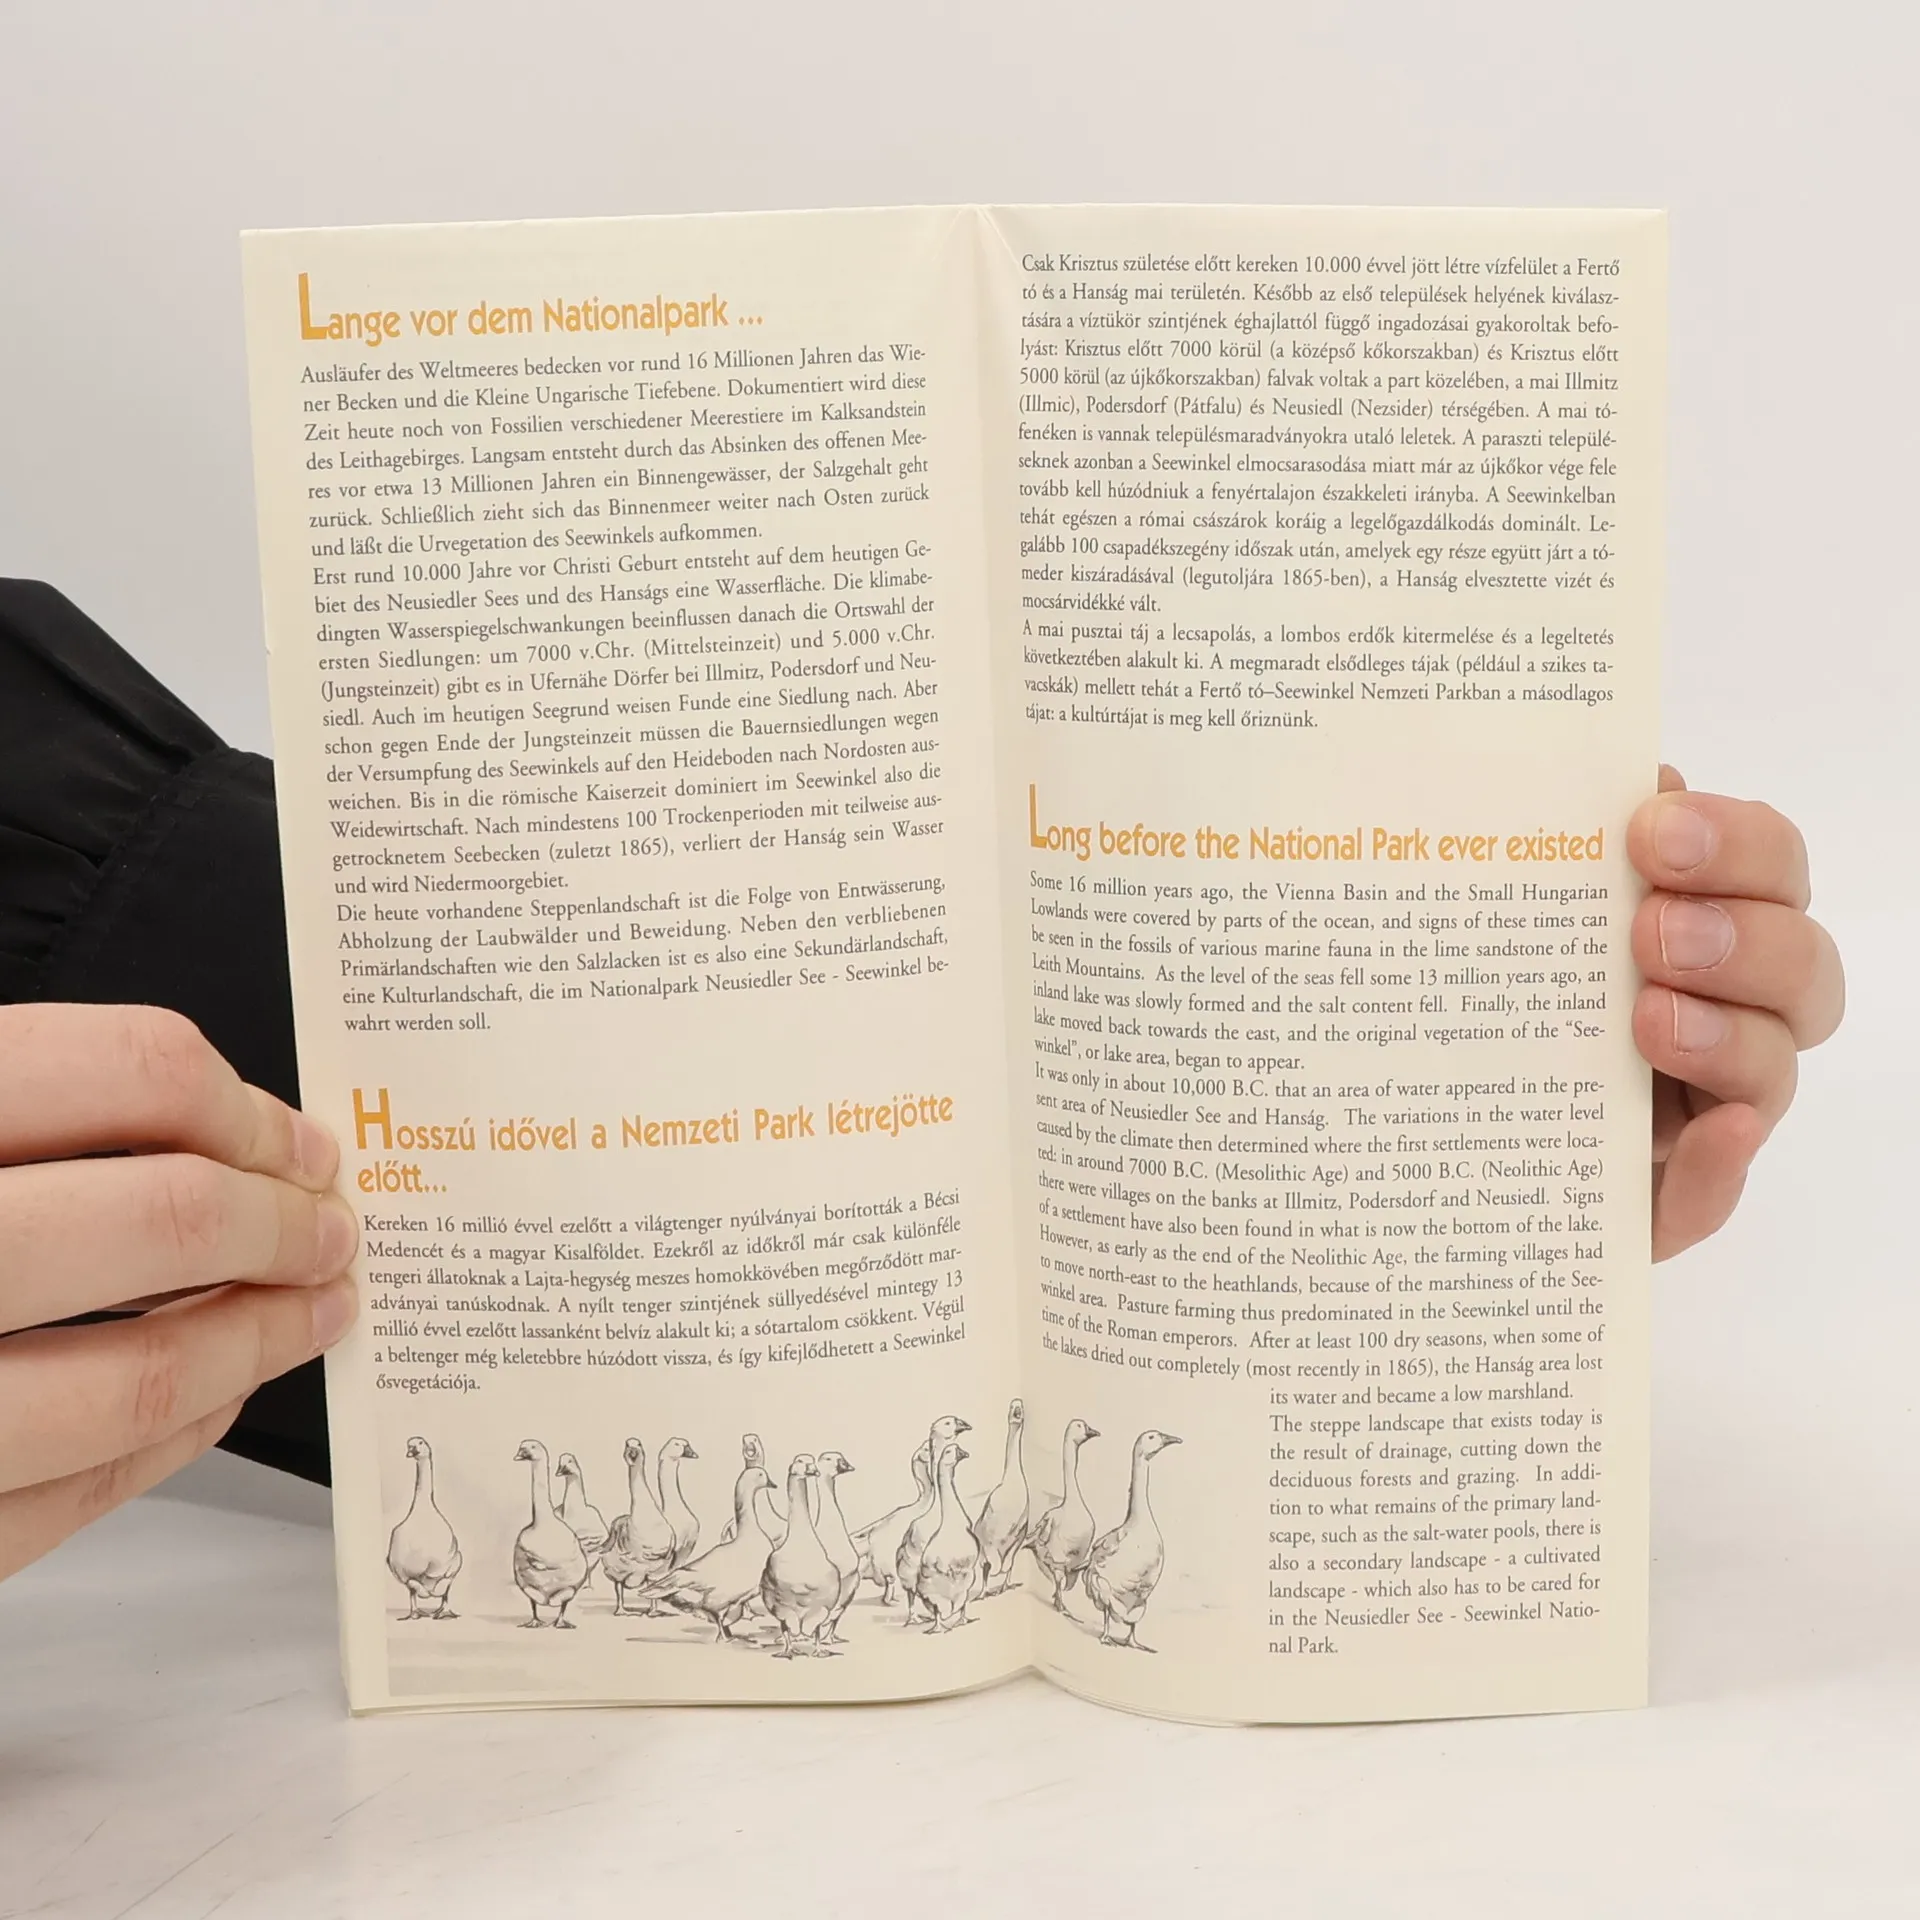 Lange vor dem Nationalpark ...
Ausläufer des Weltmeeres bedecken vor rund 16 Millionen Jahren das Wie-
ner Becken und die Kleine Ungarische Tiefebene. Dokumentiert wird diese
Zeit heute noch von Fossilien verschiedener Meerestiere im Kalksandstein
des Leithagebirges. Langsam entsteht durch das Absinken des offenen Mee-
res vor etwa 13 Millionen Jahren ein Binnengewässer, der Salzgehalt geht
zurück. Schließlich zieht sich das Binnenmeer weiter nach Osten zurück
und läßt die Urvegetation des Seewinkels aufkommen.
Erst rund 10.000 Jahre vor Christi Geburt entsteht auf dem heutigen Ge-
biet des Neusiedler Sees und des Hanságs eine Wasserfläche. Die klimabe-
dingten Wasserspiegelschwankungen beeinflussen danach die Ortswahl der
ersten Siedlungen: um 7000 v.Chr. (Mittelsteinzeit) und 5.000 v.Chr.
(Jungsteinzeit) gibt es in Ufernähe Dörfer bei Illmitz, Podersdorf und Neu-
siedl. Auch im heutigen Seegrund weisen Funde eine Siedlung nach. Aber
schon gegen Ende der Jungsteinzeit müssen die Bauernsiedlungen wegen
der Versumpfung des Seewinkels auf den Heideboden nach Nordosten aus-
weichen. Bis in die römische Kaiserzeit dominiert im Seewinkel also die
Weidewirtschaft. Nach mindestens 100 Trockenperioden mit teilweise aus-
getrocknetem Seebecken (zuletzt 1865), verliert der Hanság sein Wasser
und wird Niedermoorgebiet.
Die heute vorhandene Steppenlandschaft ist die Folge von Entwässerung,
Abholzung der Laubwälder und Beweidung. Neben den verbliebenen
Primärlandschaften wie den Salzlacken ist es also eine Sekundärlandschaft,
eine Kulturlandschaft, die im Nationalpark Neusiedler See - Seewinkel be-
wahrt werden soll.
Hosszú idővel a Nemzeti Park létrejötte
előtt...
Kereken 16 millió évvel ezelőtt a világtenger nyúlványai borították a Bécsi
Medencét és a magyar Kisalföldet. Ezekről az időkről már csak különféle
tengeri állatoknak a Lajta-hegység meszes homokkövében megőrződött mar-
adványai tanúskodnak. A nyílt tenger szintjének süllyedésével mintegy 13
millió évvel ezelőtt lassanként belvíz alakult ki; a sótartalom csökkent. Végül
a beltenger még keletebbre húzódott vissza, és így kifejlődhetett a Seewinkel
ősvegetációja.
Csak Krisztus születése előtt kereken 10.000 évvel jött létre vízfelület a Fertő
tó és a Hanság mai területén. Később az első települések helyének kiválasz-
tására a víztükör szintjének éghajlattól függő ingadozásai gyakoroltak befo-
lyást: Krisztus előtt 7000 körül (a középső kőkorszakban) és Krisztus előtt
5000 körül (az újkőkorszakban) falvak voltak a part közelében, a mai Illmitz
(Illmic), Podersdorf (Pátfalu) és Neusiedl (Nezsider) térségében. A mai tó-
fenéken is vannak településmaradványokra utaló leletek. A paraszti települé-
seknek azonban a Seewinkel elmocsarasodása miatt már az újkőkor vége fele
tovább kell húzódniuk a fenyértalajon északkeleti irányba. A Seewinkelban
tehát egészen a római császárok koráig a legelőgazdálkodás dominált. Le-
galább 100 csapadékszegény időszak után, amelyek egy része együtt járt a tó-
meder kiszáradásával (legutoljára 1865-ben), a Hanság elvesztette vizét és
mocsárvidékké vált.
A mai pusztai táj a lecsapolás, a lombos erdők kitermelése és a legeltetés
következtében alakult ki. A megmaradt elsődleges tájak (például a szikes ta-
vacskák) mellett tehát a Fertő tó–Seewinkel Nemzeti Parkban a másodlagos
tájat: a kultúrtájat is meg kell őriznünk.
Long before the National Park ever existed
Some 16 million years ago, the Vienna Basin and the Small Hungarian
Lowlands were covered by parts of the ocean, and signs of these times can
be seen in the fossils of various marine fauna in the lime sandstone of the
Leith Mountains. As the level of the seas fell some 13 million years ago, an
inland lake was slowly formed and the salt content fell. Finally, the inland
lake moved back towards the east, and the original vegetation of the “See-
winkel”, or lake area, began to appear.
It was only in about 10,000 B.C. that an area of water appeared in the pre-
sent area of Neusiedler See and Hanság. The variations in the water level
caused by the climate then determined where the first settlements were loca-
ted: in around 7000 B.C. (Mesolithic Age) and 5000 B.C. (Neolithic Age)
there were villages on the banks at Illmitz, Podersdorf and Neusiedl. Signs
of a settlement have also been found in what is now the bottom of the lake.
However, as early as the end of the Neolithic Age, the farming villages had
to move north-east to the heathlands, because of the marshiness of the See-
winkel area. Pasture farming thus predominated in the Seewinkel until the
time of the Roman emperors. After at least 100 dry seasons, when some of
the lakes dried out completely (most recently in 1865), the Hanság area lost
its water and became a low marshland.
The steppe landscape that exists today is
the result of drainage, cutting down the
deciduous forests and grazing. In addi-
tion to what remains of the primary land-
scape, such as the salt-water pools, there is
also a secondary landscape - a cultivated
landscape - which also has to be cared for
in the Neusiedler See - Seewinkel Natio-
nal Park.